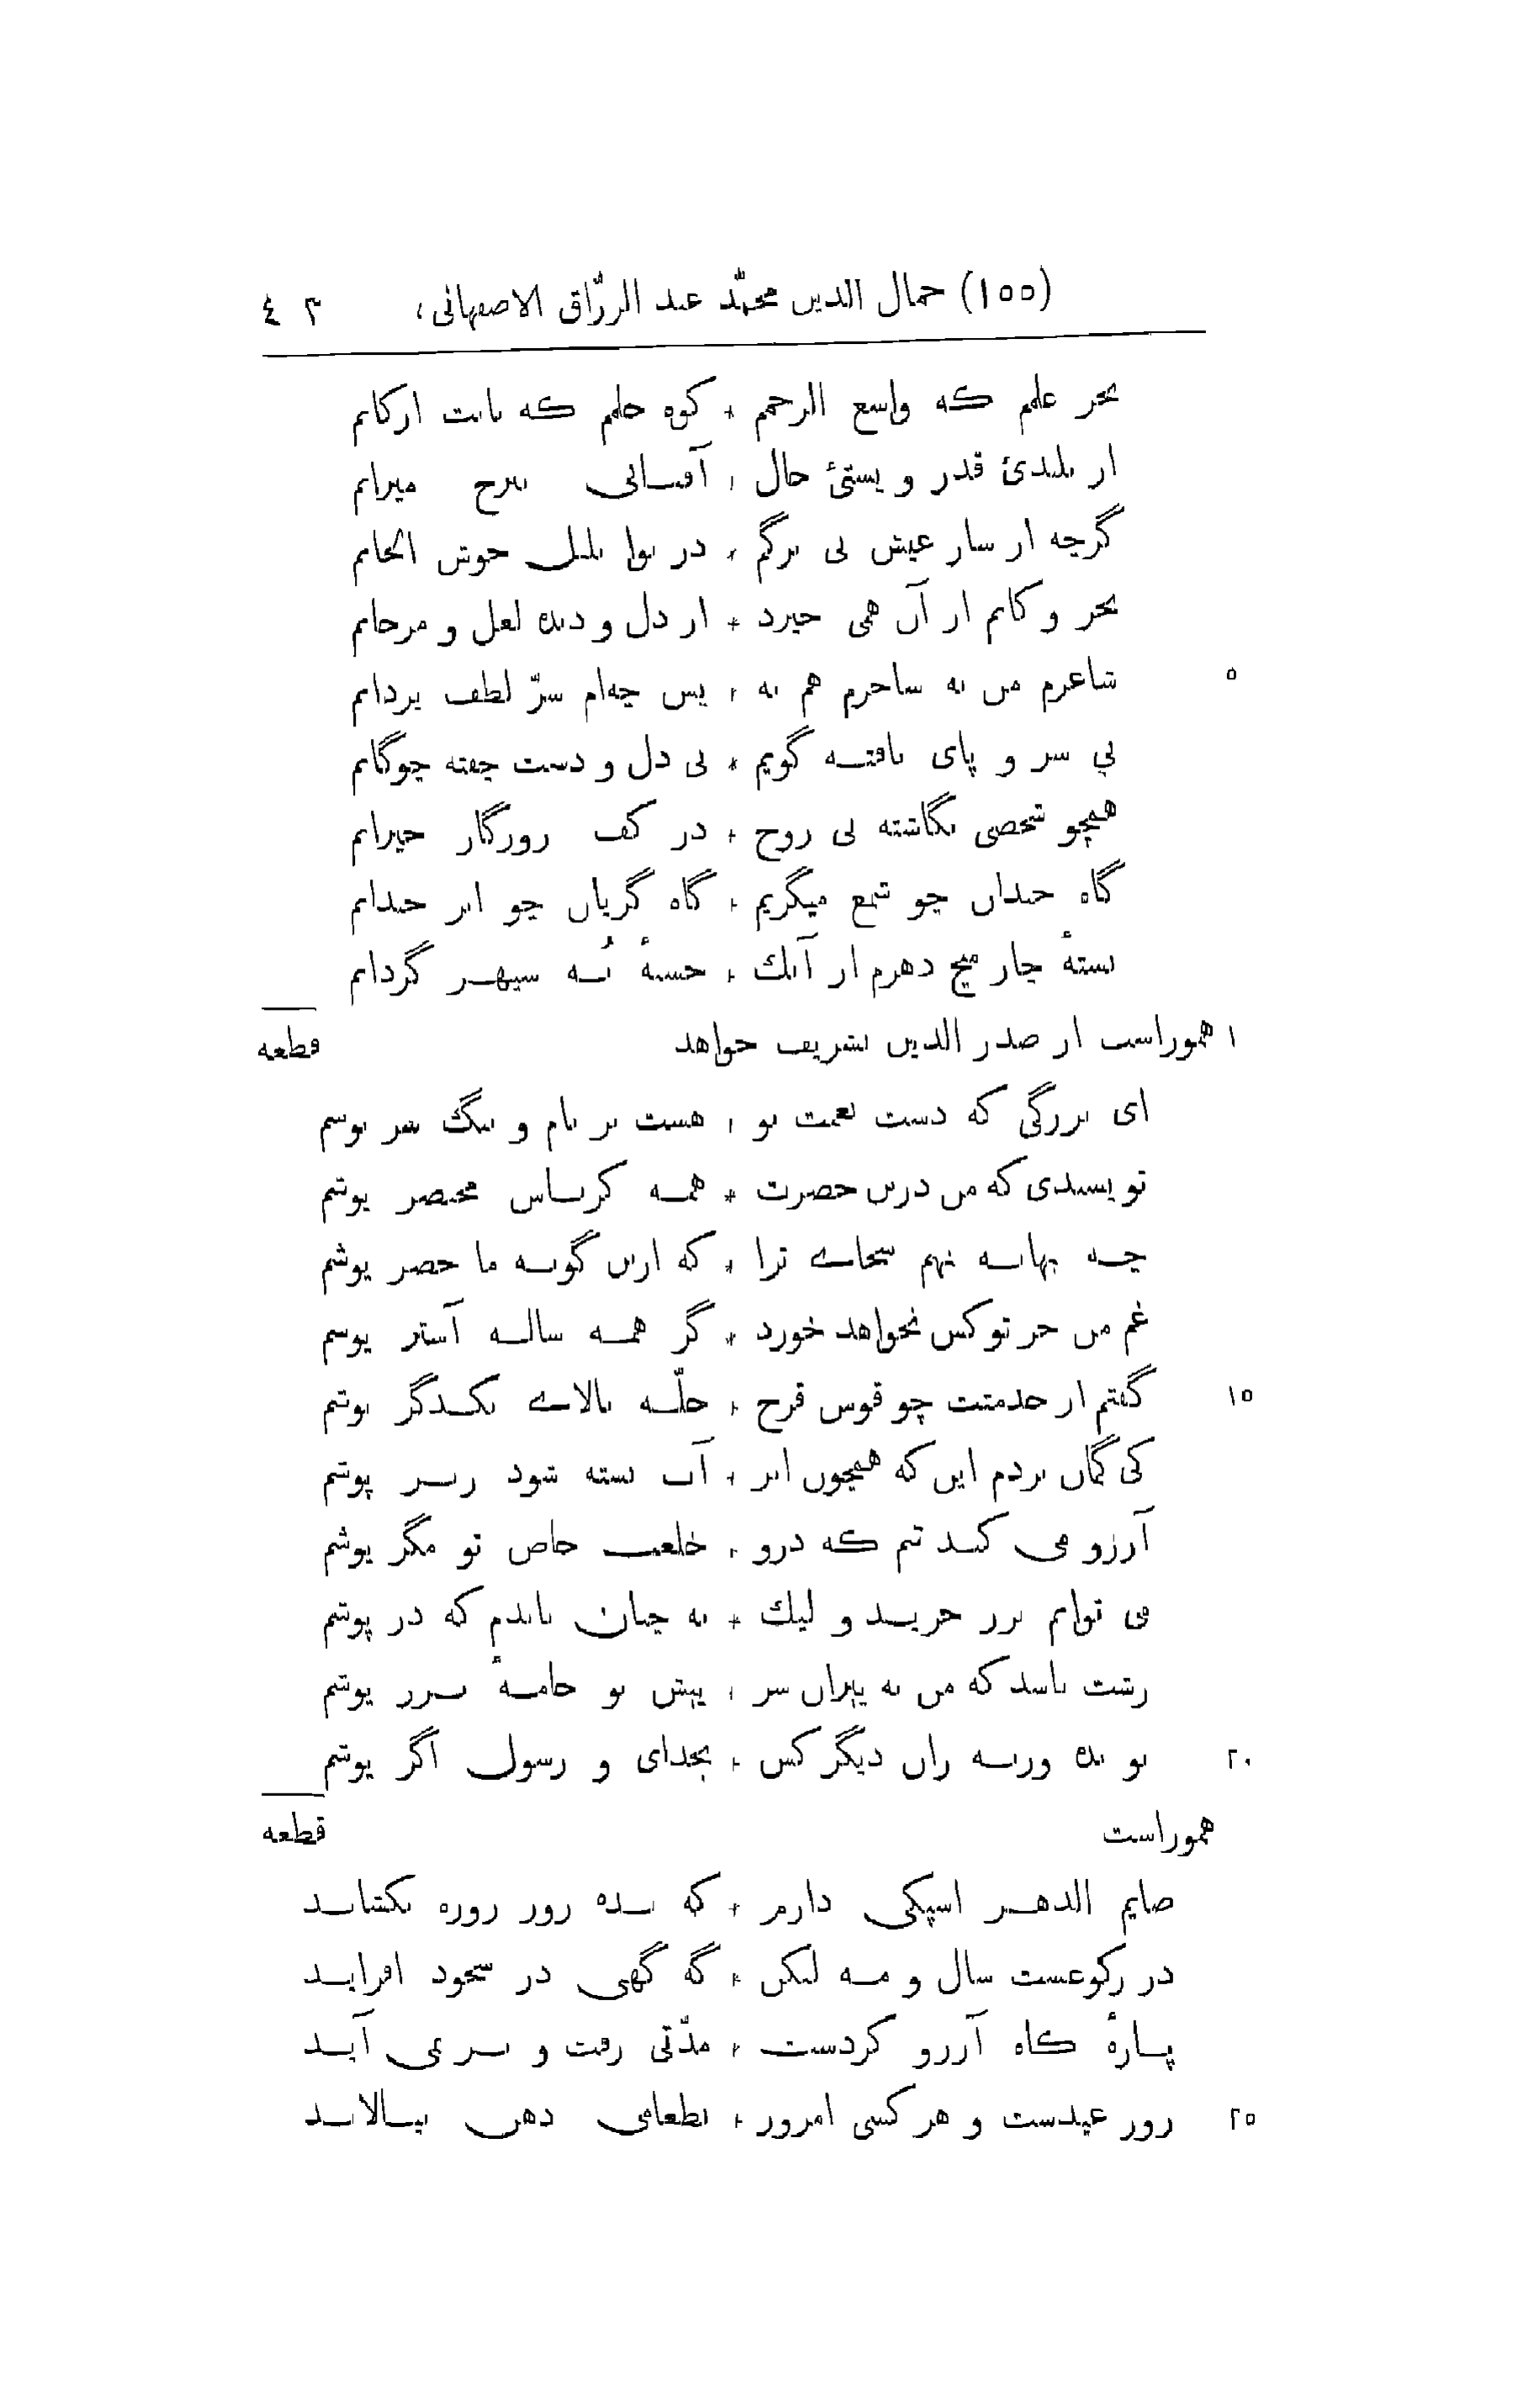 (١٥٥) جمال الدین محمّد عبد الرزّاق الاصفهانی، ٤٠٣
بحر علمم که واسع الرحمم * کوه حلمم که ثابت ارکانم
از بلندئ قدر و پستئ حال * آفتابی میزانم
گرچه از ساز عیش بی برگم * در نوا بلبل خوش الحانم
بحر و کانم از آن همی خیزد * از دل و دیده لعل و مرجانم
٥ شاعرم من نه ساحرم هم نه * پس چه‌ام سرّ لطف یزدانم
بی سر و پای یافتــه گویم * بی دل و دست جفته چوگانم
همچو شخصی نگاشته بی روح * در کف روزگار حیرانم
گاه خندان چو شمع میگریم * گاه گریان چو ابر خندانم
بستهٔ چار میخ دهرم از آنك * خستهٔ نُه سپهر گردانم
١٠ هموراست از صدر الدین تشریف خواهد قطعه
ای بزرگی که دست نعمت تو * هست بر بام و بر
تو پسندی که من درین حضرت * همه کرباس مختصر پوشم
چه بهانه نهم سخای ترا * که ازین گونه ما حضر پوشم
غم من جز تو کس نخواهد خورد * گر همه ساله آستر پوشم
١٥ گفتم از خدمتت چو قوس قزح * حلّه بالای یکدگر پوشم
کی گمان بردم این که همچون ابر * آب بسته شود زبر پوشم
آرزو می کند تنم که درو * خلعت خاص تو مگر پوشم
می توانم بزر خرید و لیك * نه چنان باشدم که در پوشم
زشت باشد که من به پیران سر * پیش تو جامهٔ بزر پوشم
٢٠ تو بده ورنه زان دیگر کس * بخدای و رسول اگر پوشم
هموراست قطعه
صایم الدهر اسپکی دارم * که بده روز روزه نگشاید
در رکوعست سال و مه لیکن * گه گهی در سجود افزاید
پارهٔ کاه آرزو کردست * مدّتی رفت و بر نمی آید
٢٥ روز عیدست و هر کسی امروز * بطعامی دهن بیالاید